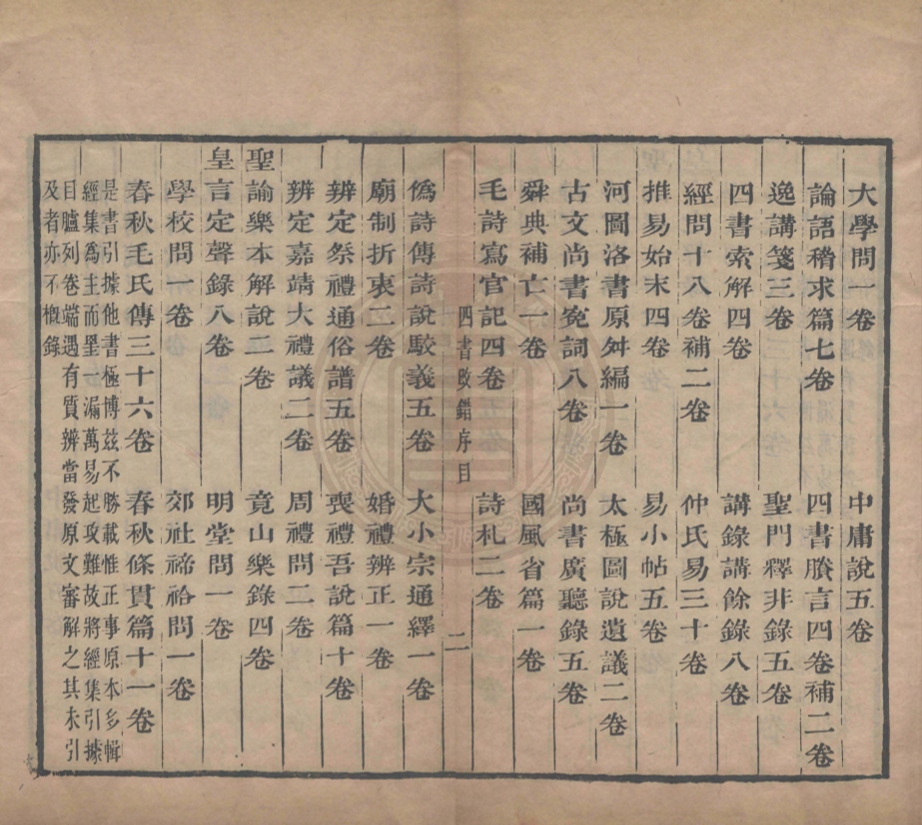 大學問一卷　中庸說五卷
論語稽求篇七卷　四書賸言四卷補二卷
逸講箋三卷　聖門釋非錄五卷
四書索解四卷　講錄講餘錄八卷
經問十八卷補二卷　仲氏易三十卷
推易始末四卷　易小帖五卷
河圖洛書原舛編一卷　太極圖說遺議二卷
古文尚書寃詞八卷　尚書廣聽錄五卷
舜典補亡一卷　國風省篇一卷
毛詩寫官記四卷　詩札二卷
四書改錯序目　二
僞詩傳詩說駮義五卷　大小宗通繹一卷
廟制折衷二卷　婚禮辨正一卷
辨定祭禮通俗譜五卷　喪禮吾說篇十卷
辨定嘉靖大禮議二卷　周禮問二卷
聖諭樂本解說二卷　竟山樂錄四卷
皇言定聲錄八卷　明堂問一卷
學校問一卷　郊社禘祫問一卷
春秋毛氏傳三十六卷　春秋條貫篇十一卷
是書引據他書極博茲不勝載惟正事原本多輯
經集爲主而罣一漏萬易起攻難故將經集引據
目臚列卷端遇有質辨當發原文審解之其未引
及者亦不槪錄